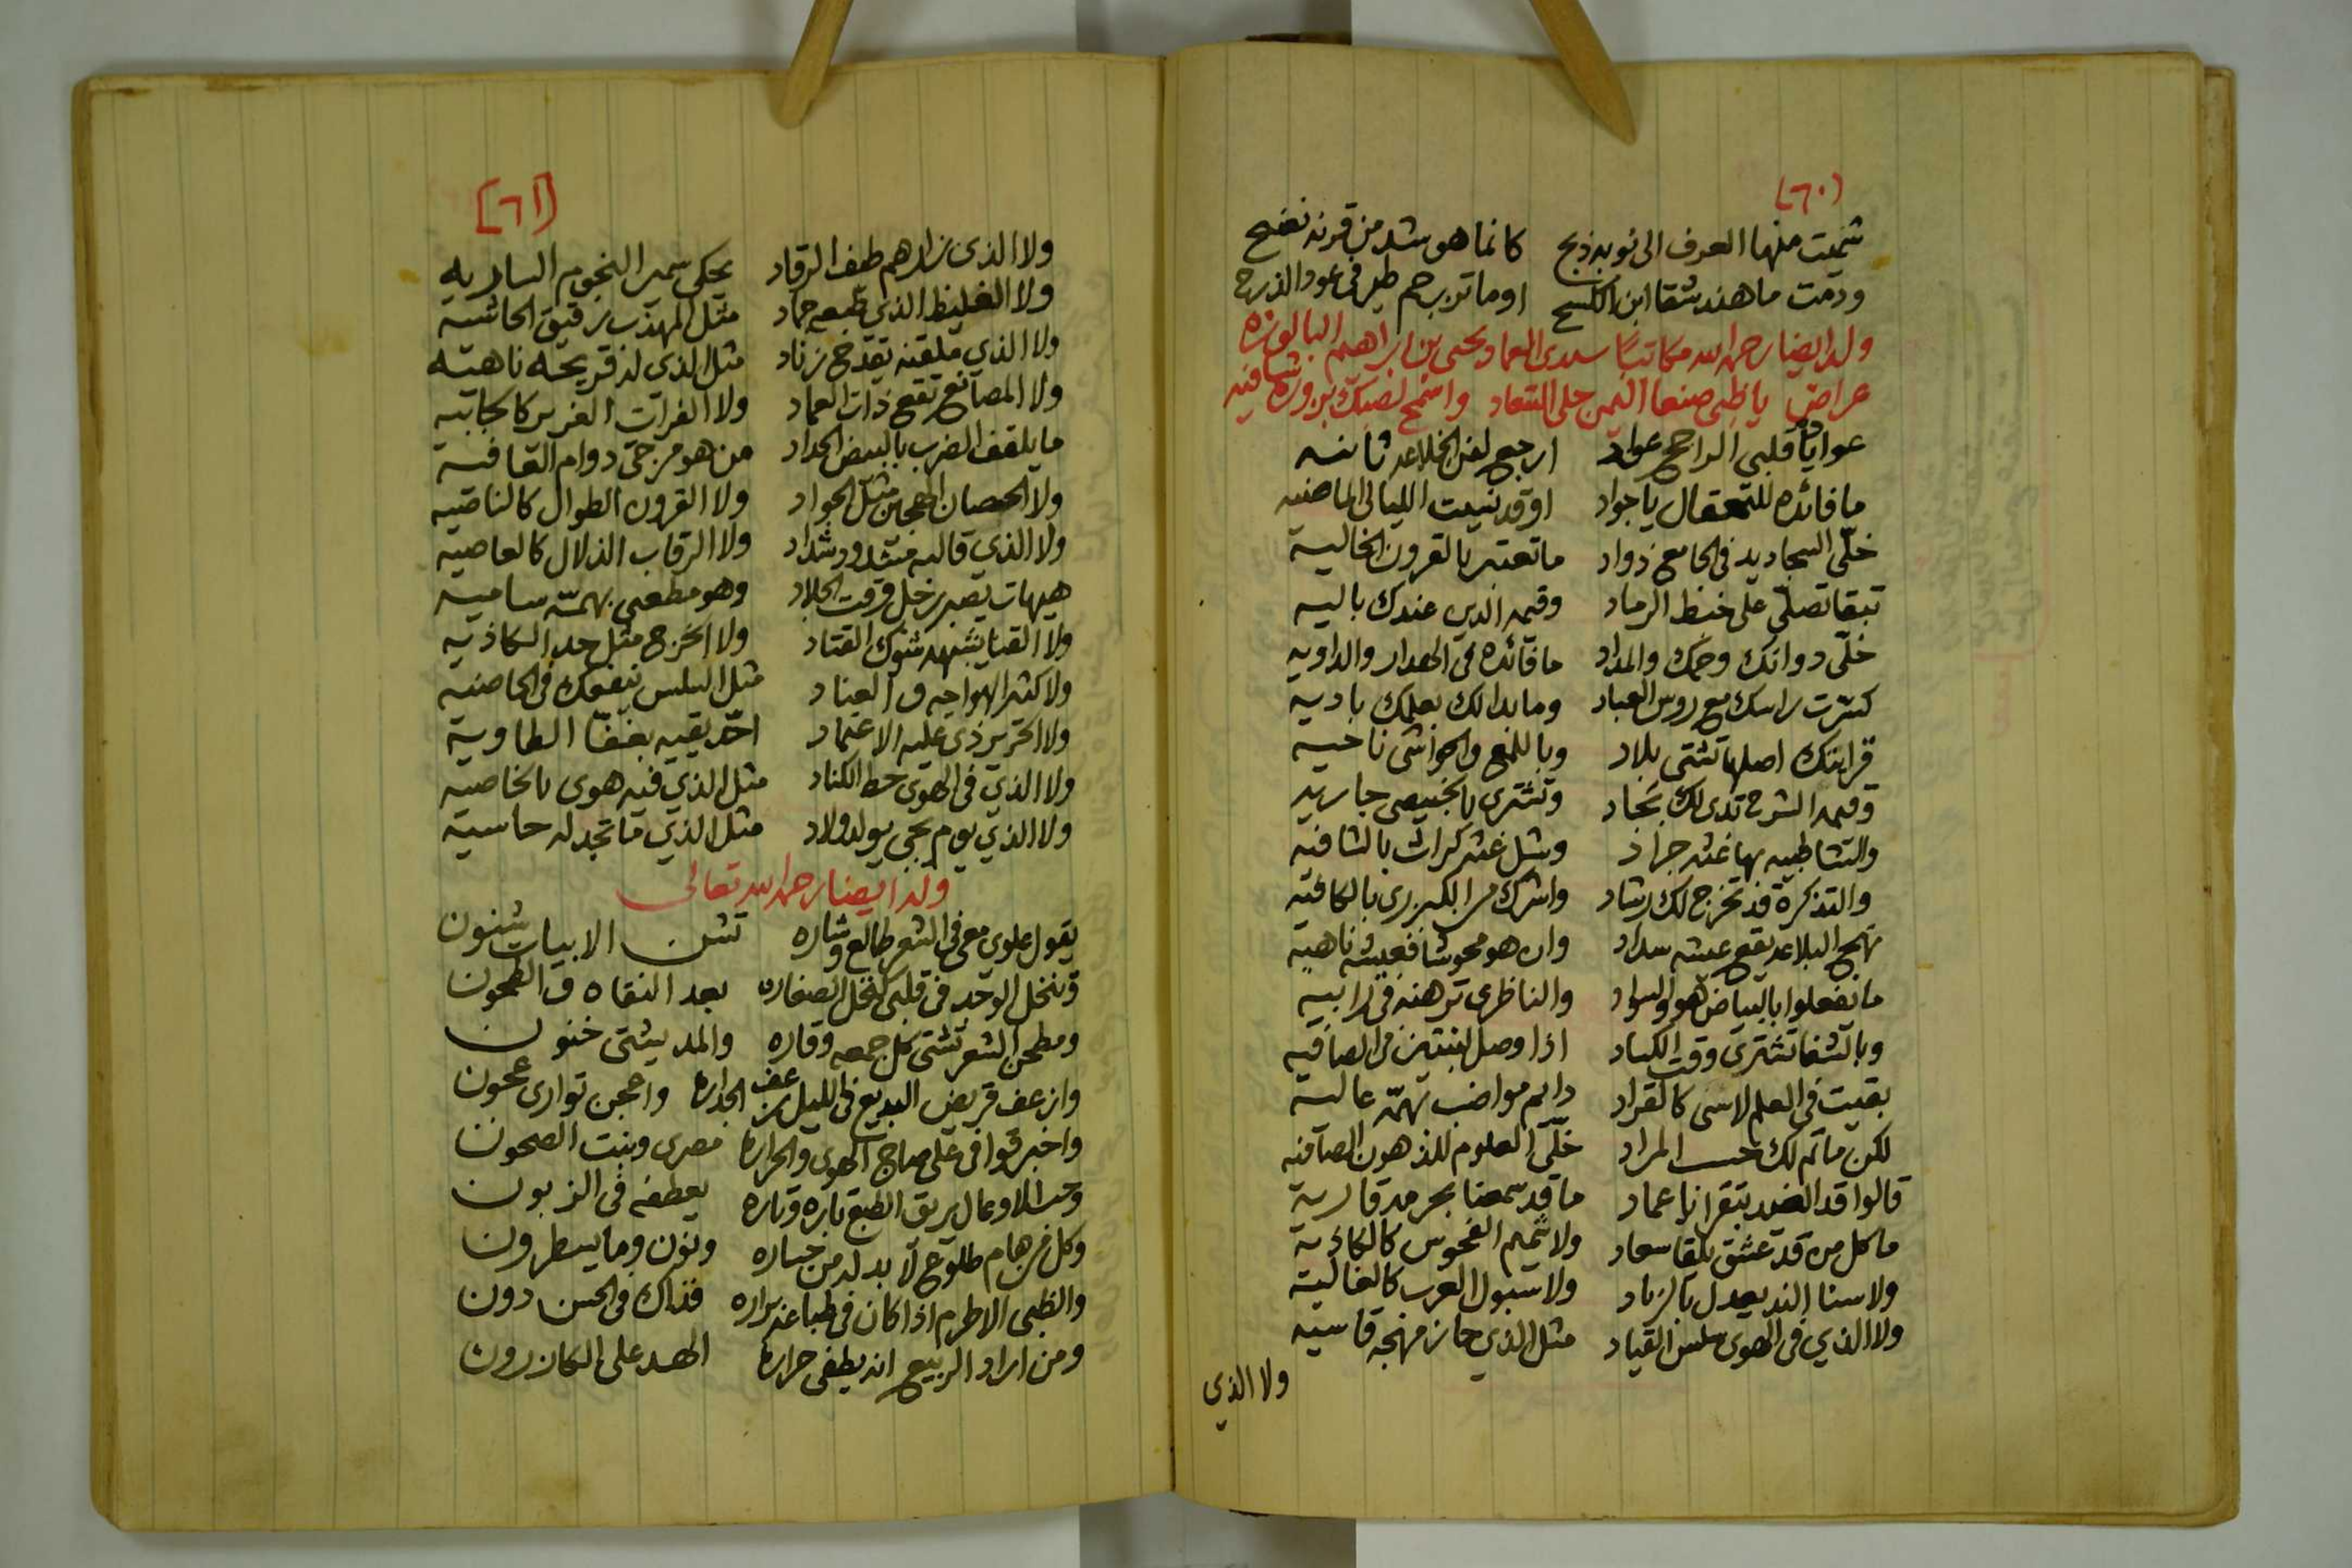 (٦٠)
شميت منها العرف الى نوبه ذبح كانما هو شد من قرنه نضح
ودمت ما هند شقا ابن اوما ترب حم طير في عود الذرح
وله ايضا رحمه الله مكاتبا سيدي العماد يحيى بن ابراهيم
عراض يا ظبي صنعا اليمن حلى واسمح لصبك بزوره شافيه
قلبي الراجح عواد ارجع لفن الخلاعه ثانيه
ما فائده يا جواد او قد نسيت الليالي الماضيه
خلّى السجاديد في الجامع زواد ما تعتبر بالقرون الخالية
تبقا تصلّي على الرماد وقيمه الدين عندك باليه
خلّى دواتك والمداد ما فائده في الجدار والداويه
كسّرت راسك مع روس العباد وما بدا لك بعلمك باديه
قرايتك اصلها تشتى بلاد وبا للمع والحواشي ناحيه
وقيمه الشرح تدى لك بجاد وتشترى بالخبيصي جاريه
والشاطبيه بها غشه جراد وشل غشه كراث بالشافيه
والتذكرة قد تخرج لك رشاد واشرك من البكيري بالكافيه
نهج البلاغه يقع عيشه سداد وان هو محوشا فعيشه ناهيه
ما تفعلوا بالبياض هو والسواد والناظرى ترهنه في رابيه
وبالشفا تشترى وقت الكساد اذا وصل بنتين من الصافيه
بقيت في العلم لاسى كالقراد دايم مواضب بهمّه عاليه
لكن ما تم لك حسب المراد خلّى العلوم للذهون الصافيه
قالوا قد يا عماد ما قد سمعنا بحرمه قاريه
ما كل من قد عشق يلقا سعاد ولا شميم الفحوس كالكاذيه
ولا سنا الند يعدل بالزباد ولا سبول الغرب كالغاليه
ولا الذي في الهوى سلس القياد مثل الذي حاز مهجه قاسيه
ولا الذي
[٦١]
ولا الذى زارهم طيف الرقاد يحكى سمير النجوم الساريه
ولا الغليظ الذي طبعه جماد مثل المهذب رقيق الحاشيه
ولا الذي ملقته تقدح زناد مثل الذى له قريحه ناهيه
ولا المصانع تقع ذات العماد ولا الفرات الغزير كالجابيه
ما يلقف الضرب بالبيض الحداد من هو مرجى دوام العافيه
ولا الحصان الهجين مثل الجواد ولا القرون الطوال كالناصيه
ولا الذي قالبه مشدود شداد ولا الرقاب الذلال كالعاصيه
هيهات يصبر زحل وقت الجلاد وهو مطعبى بهمّه ساميه
ولا القنا يشبهه شوك القتاد ولا الخزج مثل حد الكاذيه
ولا كثر الهواجه والعناد مثل البلس ينفعك في الحاضيه
ولا الحرير ذى عليه الاعتماد احّد يقيه بغفا الطاويه
ولا الذي في الهوى حط الكناد مثل الذي فيه هوى بالخاصيه
ولا الذي يوم يجي يولد ولاد مثل الذي ما تجد له حاسيه
وله ايضا رحمه الله تعالى
يقول علوي معي في الشعر طالع وشاره تشن الابيات شنون
وننخل الوجد في قلبى كنخل الصغاره بعد النقاه والطحون
ومطحن الشعر تشتى كل جمعه وقاره والمد يشتى خنون
وازعف قريض البديع في الليل زعف الجداره واعجن توارى عجون
واخبز قوافى على صاج الهوى والحراره مصرى وبنت الصحون
وحب الاوعال يريق الطبع تاره وتاره يعطفه في الزبون
وكل من هام طلوح لا بد له من خساره ونون وما يسطرون
والظبى الاطرم اذا كان في طباعه براره فذاك في الحسن دون
ومن اراد الربيع انه يطفى حراره الهـد على الكازرون